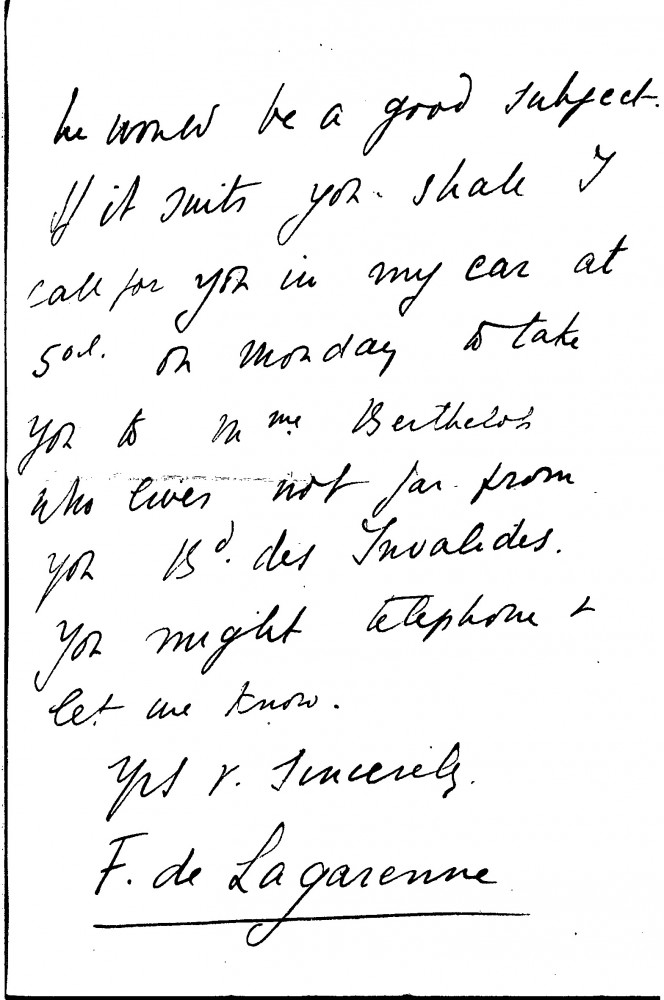 he would be a good subject.
If it suits you shall I
call for you in my car at
5 o'cl. on Monday to take
you to Mme Berthelot
who lives not far from
you Bd. des Invalides.
You might telephone &
let me know.
Yrs v. sincerely.
F. de Lagarenne